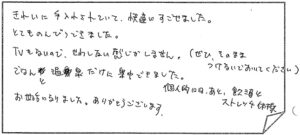 きれいに手入れされていて、快適にすごせました。
とてものんびりできました。
TVもないので、せわしない感じがしません。(ぜひ、このまま
つけないでおいてください)
ごはんと温泉だけに集中できました。
個人的には、あと、飲湯と
ストレッチ体操
お世話になりました。ありがとうございます。